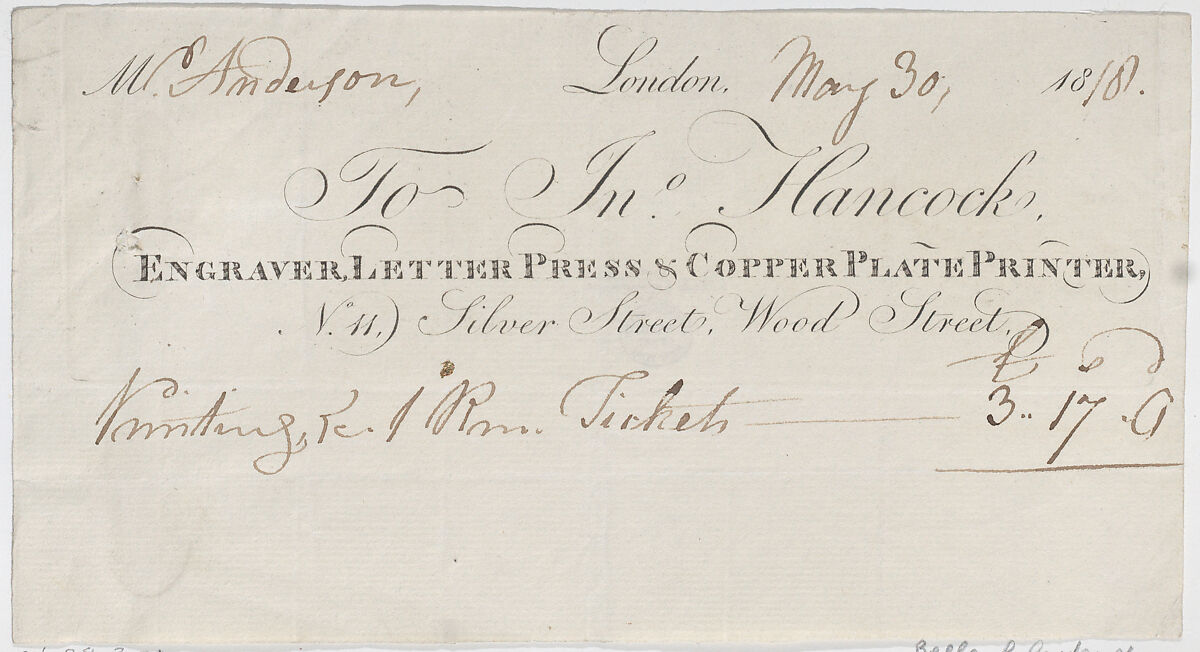 Mr. Anderson, London, May 30, 1818.
To Jno. Hancock,
ENGRAVER, LETTER PRESS & COPPER PLATE PRINTER,
No. 11, Silver Street, Wood Street,
£ s d
Printing, &c. 1 Rm. Tickets 3.. 17. 0